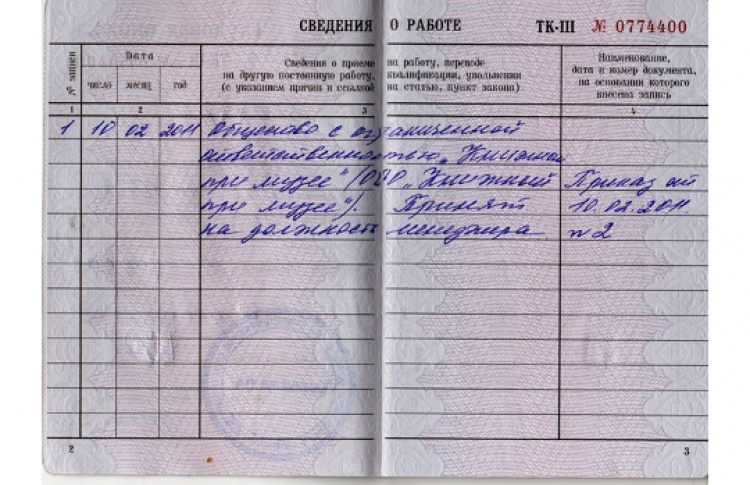 СВЕДЕНИЯ О РАБОТЕ ТК-III № 0774400
№ записи
Дата
число месяц год
Сведения о приеме на работу, переводе
на другую постоянную работу, квалификации, увольнении
(с указанием причин и ссылкой на статью, пункт закона)
Наименование,
дата и номер документа,
на основании которого
внесена запись
1 2 3 4
1 10 02 2011 Общество с ограниченной
ответственностью „Книжной
при музее" (ООО „Книжный Приказ от
при музее"). Принят 10.02.2011.
на должность менеджира n 2
2 3